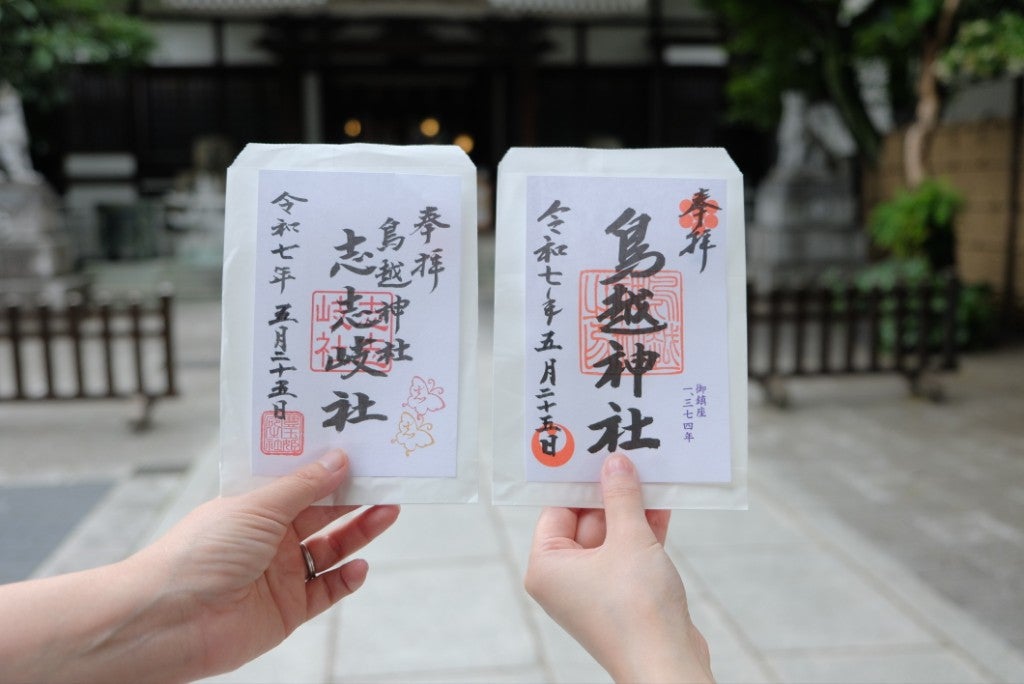 奉拝
鳥越神社
志志岐社
令和七年 五月二十五日
奉拝
鳥越神社
御鎮座
一、三七四年
令和七年五月二十五日